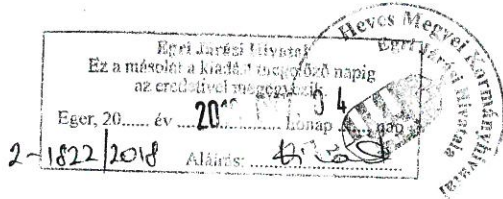 Egri Járási Hivatal
Ez a másolat a kiadást megelőző napig
az eredetivel megegyezik.
Eger, 20...... év ................ hónap ...... nap
2-1822/2018 Aláírás: ....................
Heves Megyei Kormányhivatal
Egri Járási Hivatala